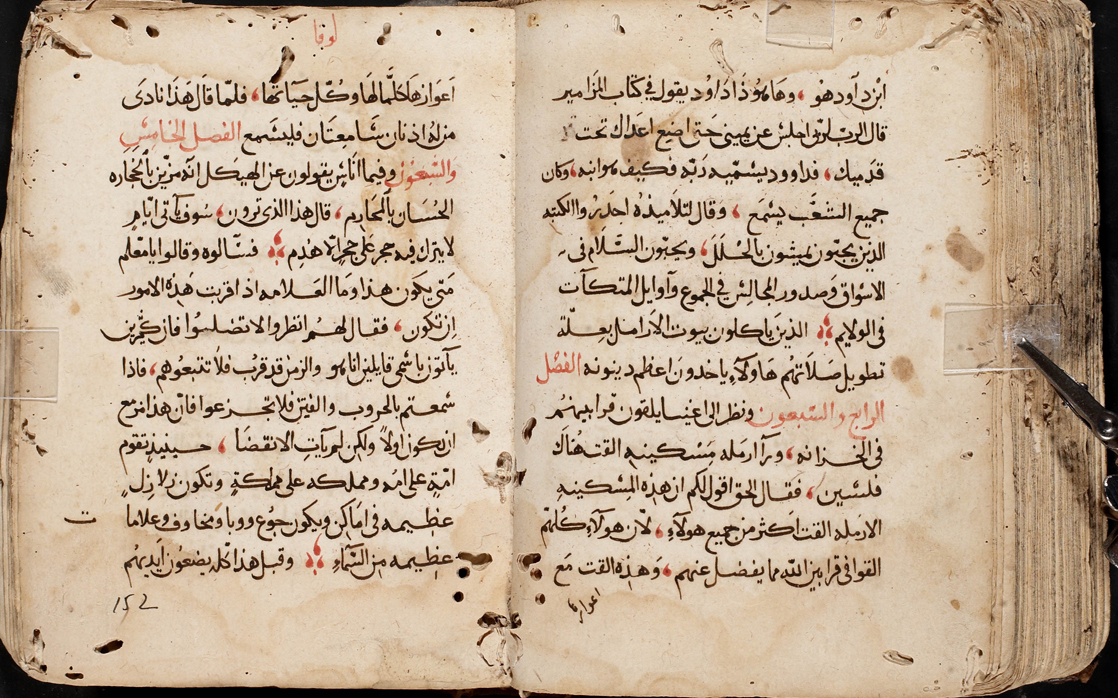 ابن داود هو وها هوذا داود يقول في كتاب المزامير
قال الرب لربي اجلس عن يميني حتى اضع اعداك تحت
قدميك فداوود يسميه ربه فكيف هو ابنه وكان
جميع الشعب يسمع وقال لتلاميذه احذروا الكتبه
الذين يحبون يمشون بالحلل ويحبون السلام في
الاسواق وصدور المجالس في الجموع وآوايل المتكآت
في الولايم الذين ياكلون بيوت الارامل بعلة
تطويل صلاتهم هاولآء ياخدون اعظم دينونه الفصل
الرابع والسبعون ونظر الى اغنيا يلقون قرابينهم
في الخزانه ورآ ارمله مسكينه القت هناك
فلسين فقال الحق اقول لكم ان هذه المسكينه
الارمله القت اكثر من جميع هولآء لان هولآء كلهم
القوا في قرابين الله مما يفضل عنهم وهذه القت مع
اعوازها
لوقا
اعوازها كلما لها وكل حياتها فلما قال هذا نادى
من له اذنان سامعتان فليسمع الفصل الخامس
والسبعون وفيما اناس يقولون عن الهيكل انه مزين بالحجاره
الحسان قال هذا الذى ترون سوف ياتى ايام
لا يترك فيه حجر على حجر الا هدم فسالوه وقالوا يا معلم
متى يكون هذا وما العلامه اذا اقربت هذه الامور
ان تكون فقال لهم انظروا لا تضلوا فان كثيرين
ياتون باسمى قايلين انا هو والزمن قد قرب فلا تتبعوهم فاذا
سمعتم بالحروب والفتن فلا تجزعوا فان هذا مزمع
ان يكون اولاً ولكن لم يآت الانقضا حينيذ تقوم
امة على امه ومملكه على مملكة وتكون زلازل
عظيمه في اماكن ويكون جوع ووبا ومخاوف وعلاما
ت
عظيمه من السماء وقبل هذا كله يضعون ايديهم
152